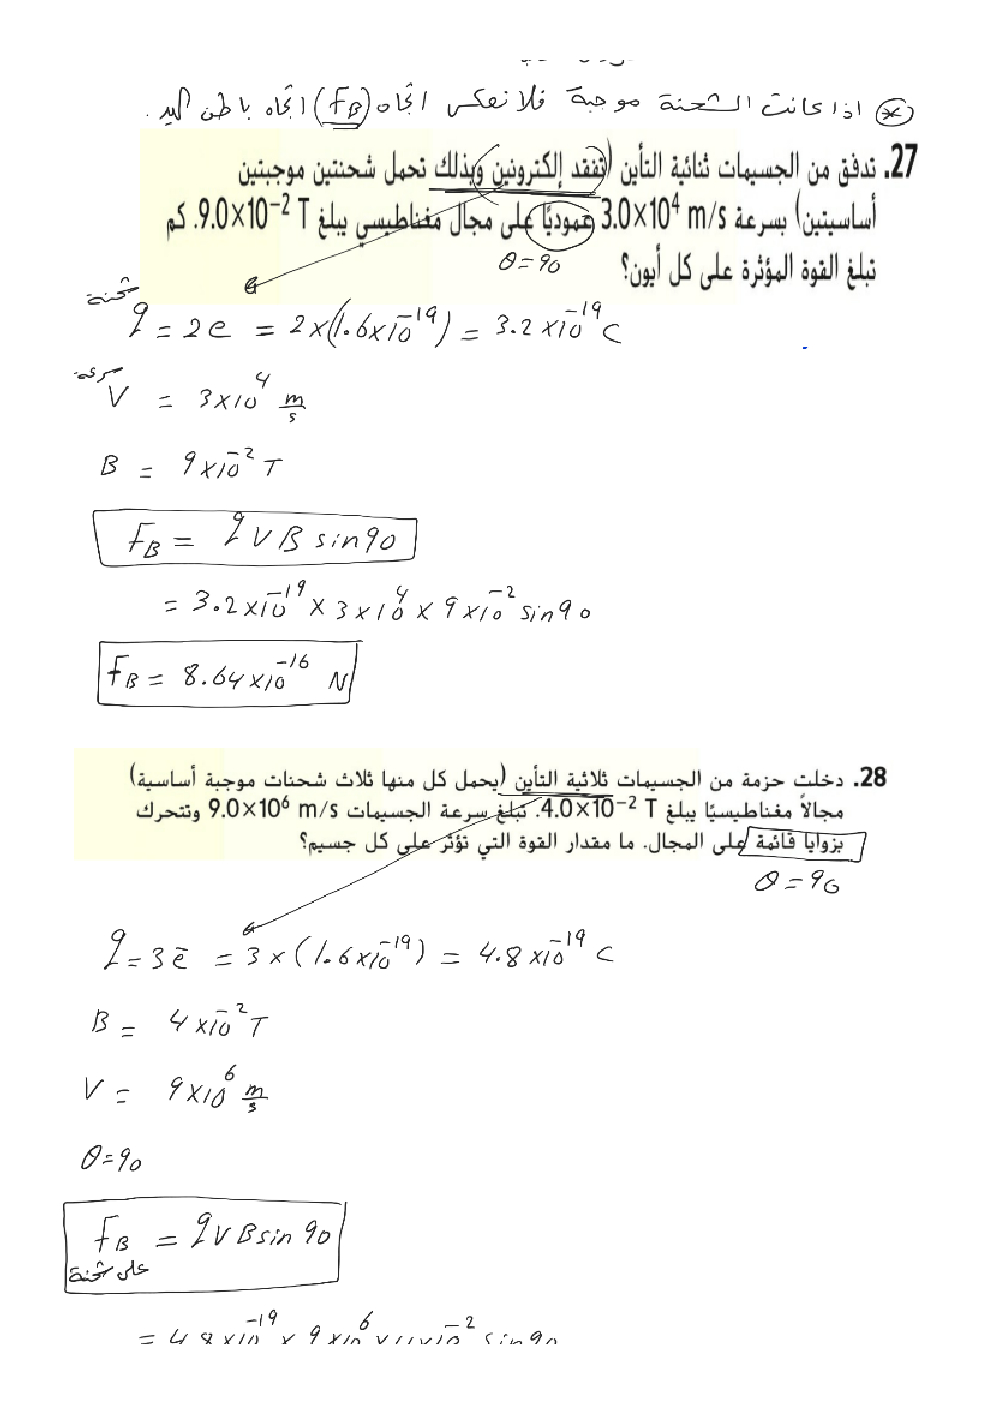 * اذا كانت الشحنة موجبة فلا نعكس اتجاه (FB) اتجاه باطن اليد.
27. تدفق من الجسيمات ثنائية التأين (تفقد إلكترونين وبذلك تحمل شحنتين موجبتين
أساسيتين) بسرعة 3.0×10⁴ m/s عموديًا على مجال مغناطيسي يبلغ 9.0×10⁻² T. كم
تبلغ القوة المؤثرة على كل أيون؟
θ=90
شحنة
q = 2e = 2×(1.6×10⁻¹⁹) = 3.2×10⁻¹⁹ C
سرعة
V = 3×10⁴ m/s
B = 9×10⁻² T
FB = qVB sin90
= 3.2×10⁻¹⁹ × 3×10⁴ × 9×10⁻² sin90
FB = 8.64×10⁻¹⁶ N
28. دخلت حزمة من الجسيمات ثلاثية التأين (يحمل كل منها ثلاث شحنات موجبة أساسية)
مجالاً مغناطيسيًا يبلغ 4.0×10⁻² T. تبلغ سرعة الجسيمات 9.0×10⁶ m/s وتتحرك
بزوايا قائمة على المجال. ما مقدار القوة التي تؤثر على كل جسيم؟
θ=90
q=3e̅ = 3×(1.6×10⁻¹⁹) = 4.8×10⁻¹⁹ C
B = 4×10⁻² T
V = 9×10⁶ m/s
θ=90
FB = qVBsin90
على شحنة
= 4.8×10⁻¹⁹ × 9×10⁶ × 4×10⁻² sin90